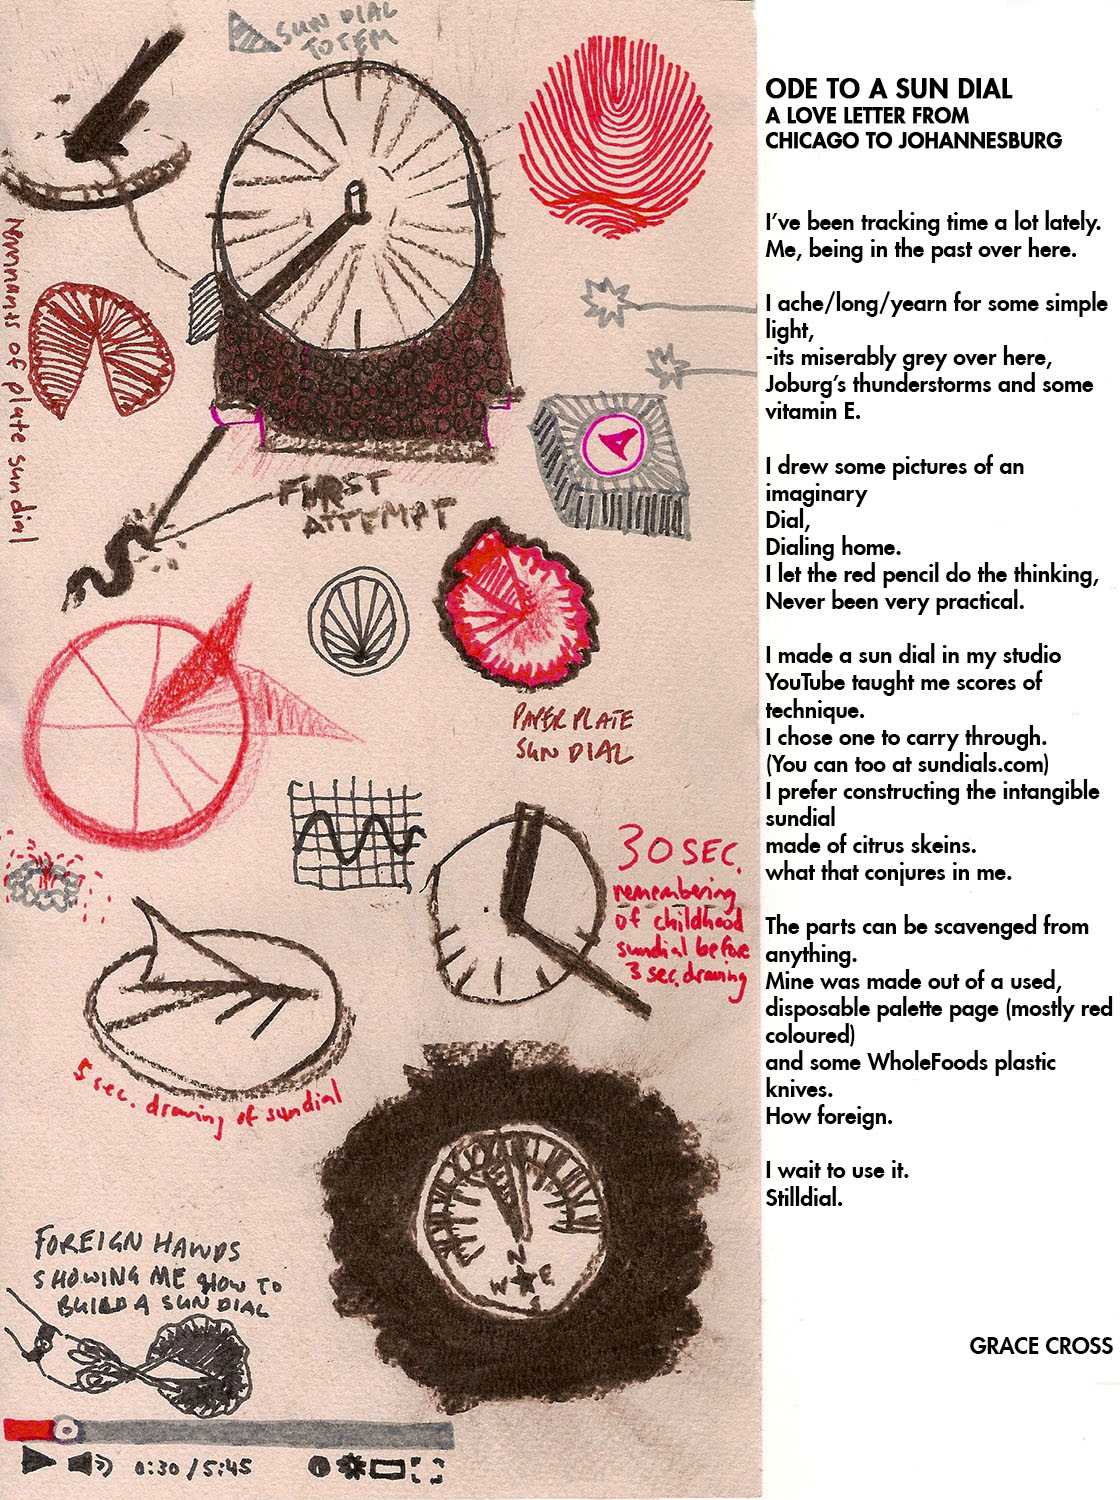 SUN DIAL
TOTEM
Remnants of plate sundial
FIRST
ATTEMPT
PAPER PLATE
SUN DIAL
30 SEC.
remembering
of childhood
sundial before
3 sec. drawing
5 sec. drawing of sundial
N
W E
S
FOREIGN HANDS
SHOWING ME HOW TO
BUILD A SUN DIAL
0:30 / 5:45
ODE TO A SUN DIAL
A LOVE LETTER FROM
CHICAGO TO JOHANNESBURG
I've been tracking time a lot lately.
Me, being in the past over here.
I ache/long/yearn for some simple
light,
-its miserably grey over here,
Joburg's thunderstorms and some
vitamin E.
I drew some pictures of an
imaginary
Dial,
Dialing home.
I let the red pencil do the thinking,
Never been very practical.
I made a sun dial in my studio
YouTube taught me scores of
technique.
I chose one to carry through.
(You can too at sundials.com)
I prefer constructing the intangible
sundial
made of citrus skeins.
what that conjures in me.
The parts can be scavenged from
anything.
Mine was made out of a used,
disposable palette page (mostly red
coloured)
and some WholeFoods plastic
knives.
How foreign.
I wait to use it.
Stilldial.
GRACE CROSS